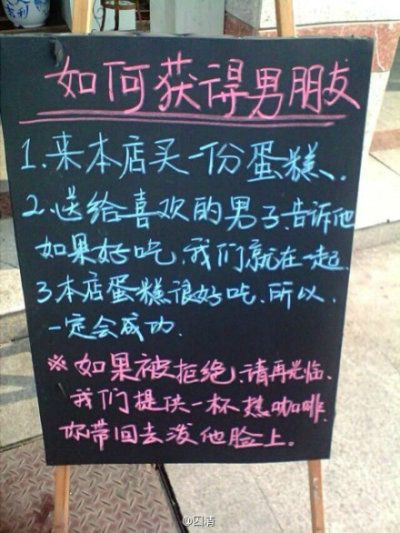 如何获得男朋友
1.来本店买一份蛋糕、
2.送给喜欢的男子.告诉他
如果好吃、我们就在一起.
3本店蛋糕很好吃.所以、
一定会成功.
※如果被拒绝、请再光临.
我们提供一杯热咖啡.
你带回去泼他脸上.